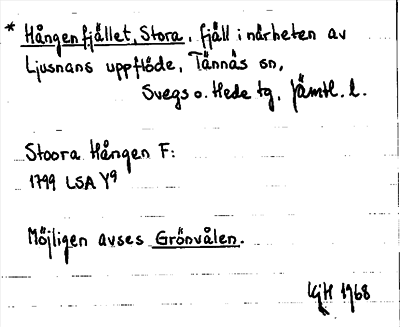 * Hångenfjället, Stora, fjäll i närheten av
Ljusnans uppflöde, Tännäs sn,
Svegs o. Hede tg, Jämtl. l.
Stoora Hången F:
1799 LSA Y9
Möjligen avses Grönvålen.
GjH 1968